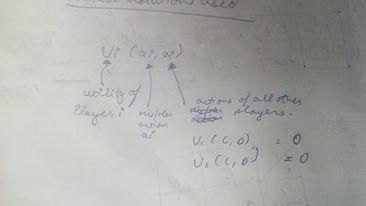 used
Ui (ai, ai)
utility of
Player i
his/her
action
ai
actions of all other
players.
U1 (C, D) = 0
U2 (C, D) = 0